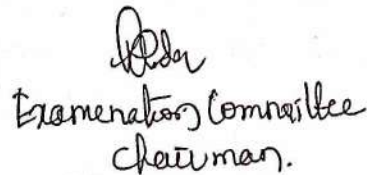 Examenation Commaillee
Chairman.